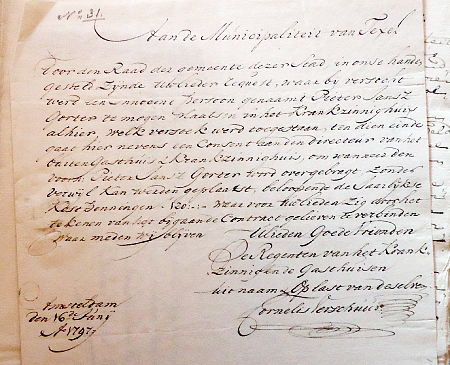 No. 31.
Aan de Municipaliteit van Texel
Door den Raad der gemeente dezer Stad, in onse handen
gesteld Zynde Ulieder Request, waar by versoert
werd een innocent Persoon genaamt Pieter Sansz
Gorter te mogen plaatsen in het Krankzinnighuis
alhier, welk versoek werd toegestaan, ten dien einde
gaat hier nevens een Consent aan den directeur van het
buiten Gasthuis & Krankzinnighuis, om wanneer den
voorn. Pieter Sansz Gorter word overgebragt, zonder
verwyl kan werden geplaatst, beloopende de Jaarlykse
Kost Penningen waar voor Ulieden zig door het
tekenen van het bygaande Contract gelieven te verbinden
waar mede wy blyven
Ulieden Goede Vrienden
De Regenten van het Krank-
zinnig en de Gasthuisen
uit naam & op last van deselve
Cornelis Verschuur
Amsteldam
den 16e Juny
Ao 1797